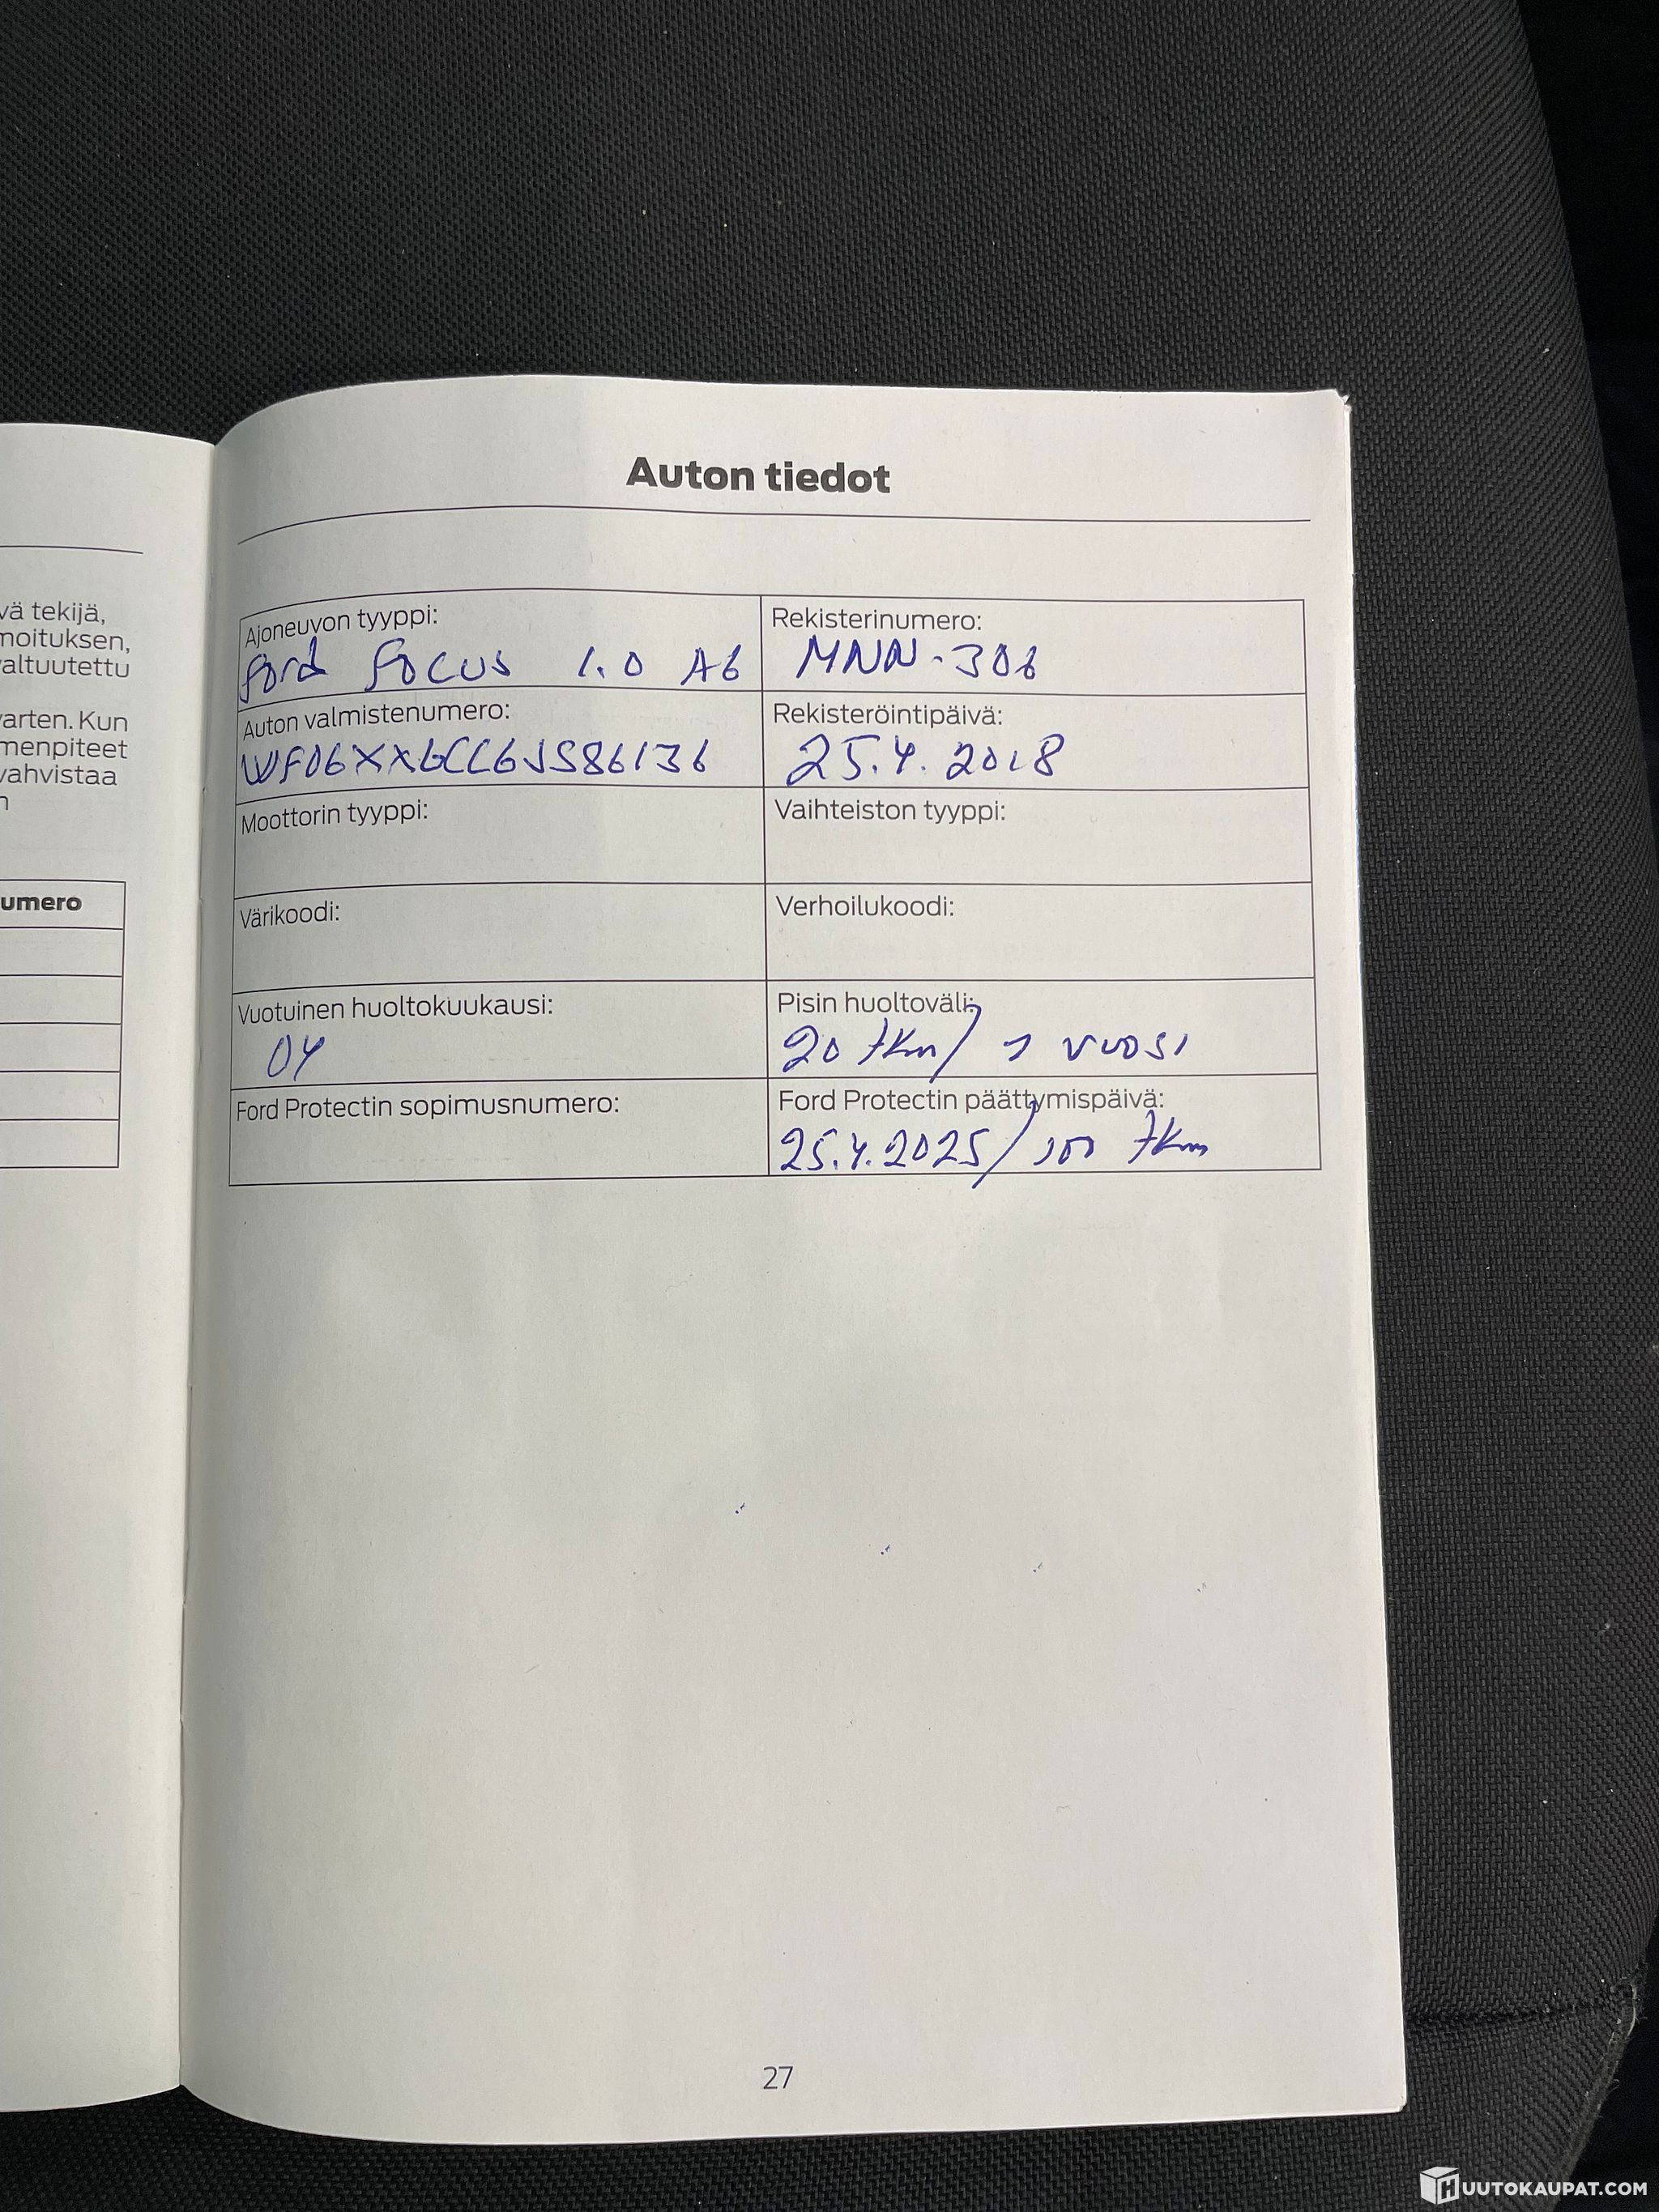 vä tekijä,
moituksen,
altuutettu
arten. Kun
menpiteet
vahvistaa
n
umero
Auton tiedot
Ajoneuvon tyyppi:
Ford Focus 1.0 A6
Rekisterinumero:
MNN-306
Auton valmistenumero:
WF06XXGCC6JS86136
Rekisteröintipäivä:
25.4.2018
Moottorin tyyppi:
Vaihteiston tyyppi:
Värikoodi:
Verhoilukoodi:
Vuotuinen huoltokuukausi:
04
Pisin huoltoväli:
20 tkm/ 1 vuosi
Ford Protectin sopimusnumero:
Ford Protectin päättymispäivä:
25.4.2025/ 100 tkm
27
HUUTOKAUPAT.COM